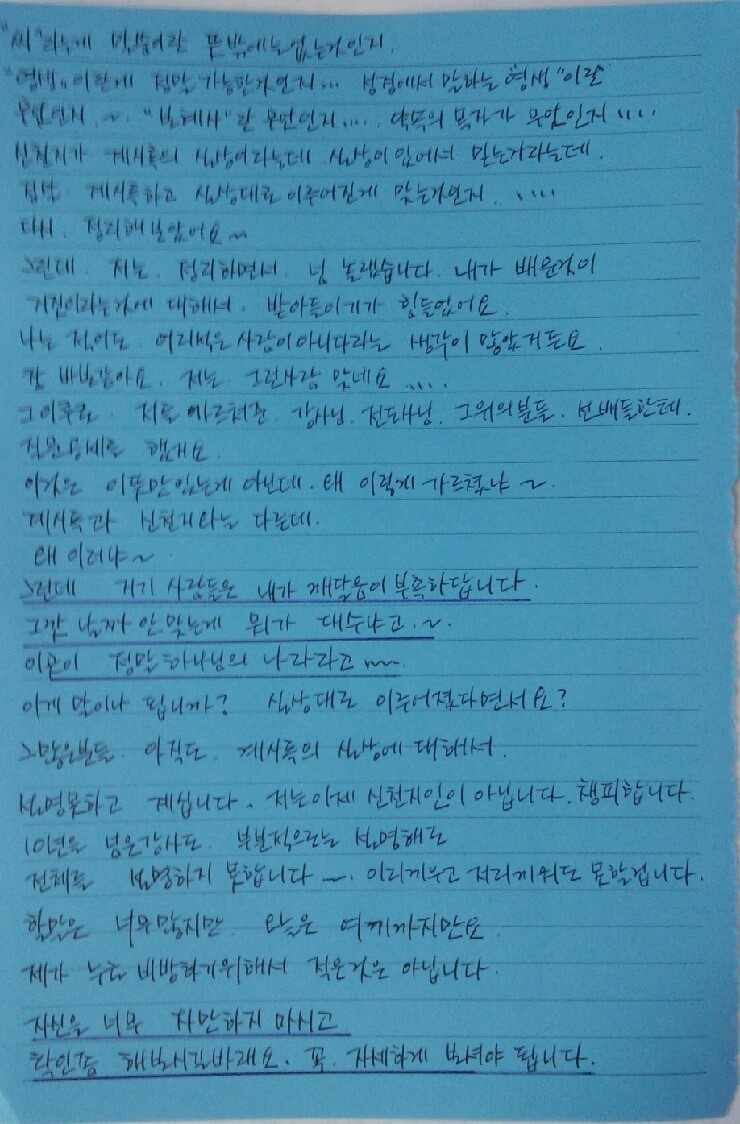 "씨"라는게 말씀이란 뜻밖에는 없는것인지.
"영생"이란게 정말 가능한것인지... 성경에서 말하는 영생"이란
무엇인지.~. "보혜사"란 무엇인지.... 약속의 목자가 무엇인지....
신천지가 계시록의 실상이라는데 실상이 있어서 믿는거라는데.
정말 계시록하고 실상대로 이루어진게 맞는것인지. ....
다시. 정리해보았어요~
그런데. 저는. 정리하면서. 넘 놀랬습니다. 내가 배운것이
거짓이라는것에 대해서. 받아들이기가 힘들었어요.
나는 적어도. 어리석은 사람이 아니다라는 생각이 많았거든요
참 바보같아요. 저는. 그런사람 맞네요 .....
그 이후로. 저를 가르쳐준. 강사님. 전도사님. 그위의분들. 선배들한테.
질문공세를 했어요.
아직은 이뿐만 있는게 아닌데. 왜 이렇게 가르쳤냐~.
계시록과 신천지와는 다른데.
왜 이러냐~.
그런데 거기 사람들은 내가 깨달음이 부족하답니다.
그깟 날짜 안 맞는게 뭐가 대수냐고.~.
이곳이 정말 하나님의 나라라고~~.
이게 말이나 됩니까? 실상대로 이루어졌다면서요?
그많은분들. 아직도. 계시록의 실상에 대해서.
설명못하고 계십니다. 저는이제 신천지인이 아닙니다. 챙피합니다.
10년을 넘은강사도. 부분적으로는 설명해도
전체를 설명하지 못합니다~. 이리끼우고 저리끼워도 못할겁니다.
할말은 너무 많지만. 오늘은 여기까지만요.
제가 누굴 비방하기위해서 적은것은 아닙니다.
자신을 너무 자만하지 마시고
확인좀 해보시길바래요. 꼭. 자세하게 보셔야 됩니다.